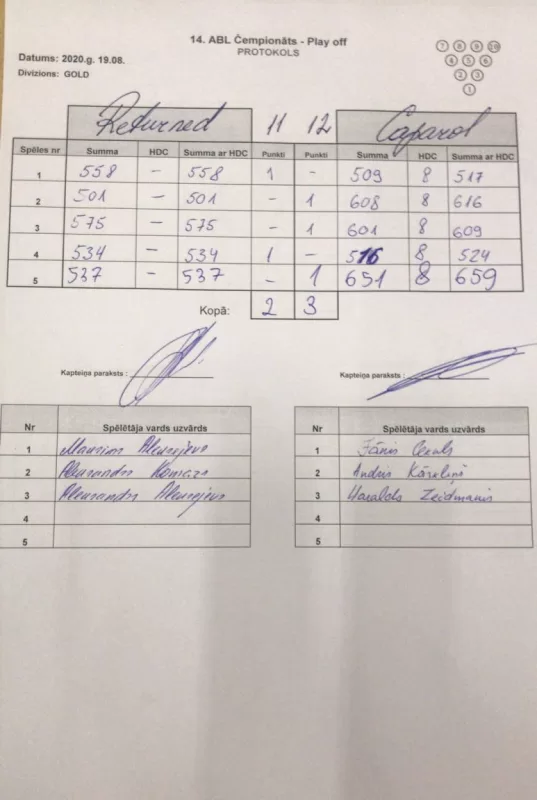 14. ABL Čempionāts - Play off
PROTOKOLS
Datums: 2020.g. 19.08.
Divizions: GOLD
7 8 9 10
4 5 6
2 3
1
Returned 11 12 Caparol
Spēles nr Summa HDC Summa ar HDC Punkti Punkti Summa HDC Summa ar HDC
1 558 – 558 1 – 509 8 517
2 501 – 501 – 1 608 8 616
3 575 – 575 – 1 601 8 609
4 534 – 534 1 – 516 8 524
5 537 – 537 – 1 651 8 659
Kopā: 2 3
Kapteiņa paraksts : Kapteiņa paraksts :
Nr Spēlētāja vards uzvārds
1 Maksims
2 Aleksandrs
3 Aleksandrs
4
5
Nr Spēlētāja vards uzvārds
1 Jānis
2 Andris Kārkliņš
3 Haralds Zeidmanis
4
5